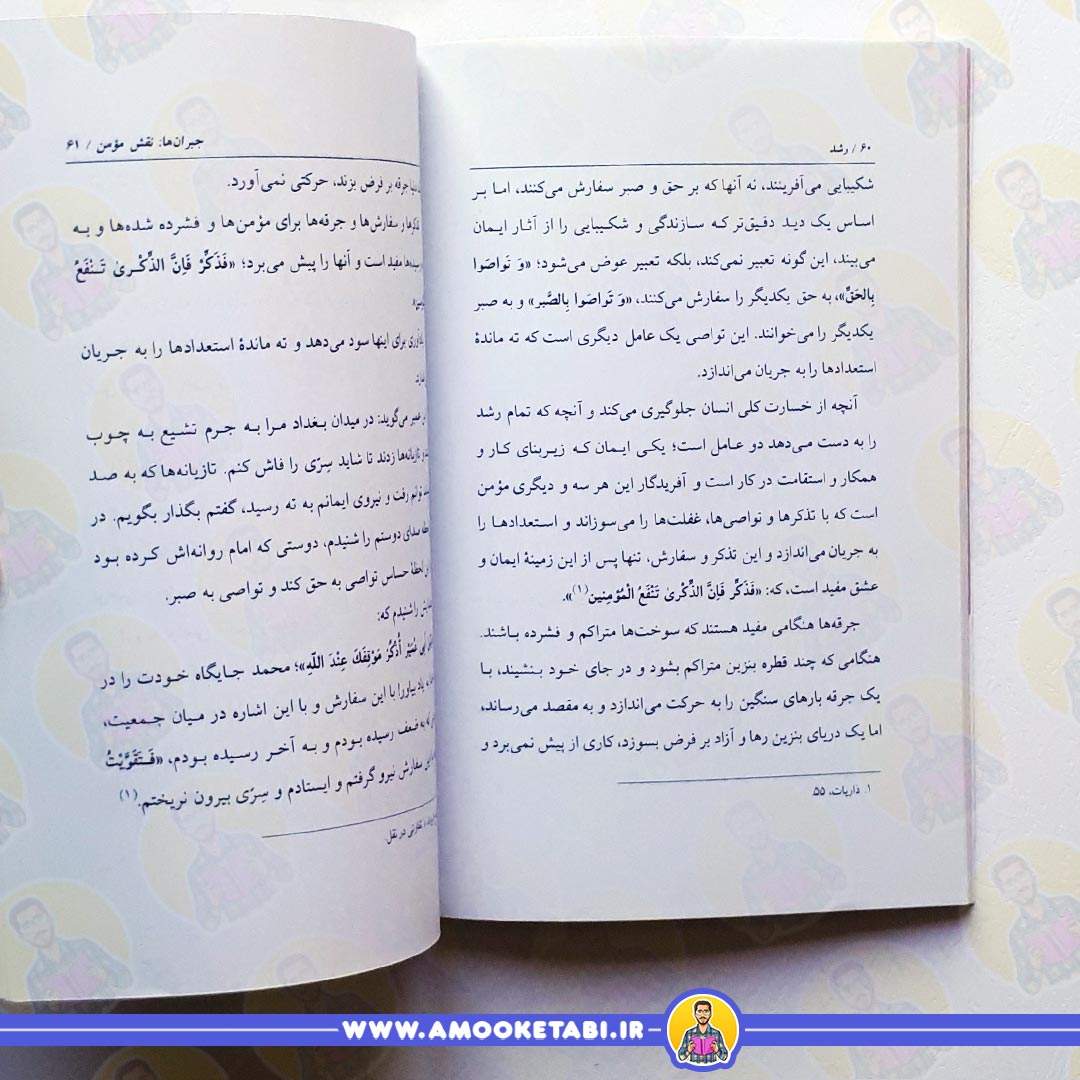 ۶۰ / رشد
شکیبایی می‌آفرینند، نه آنها که بر حق و صبر سفارش می‌کنند، اما بر
اساس یک دید دقیق‌تر که سازندگی و شکیبایی را از آثار ایمان
می‌بیند، این گونه تعبیر نمی‌کند، بلکه تعبیر عوض می‌شود؛ «وَ تَواصَوا
بِالحَقِّ»، به حق یکدیگر را سفارش می‌کنند، «وَ تَواصَوا بِالصَّبر» و به صبر
یکدیگر را می‌خوانند. این تواصی یک عامل دیگری است که ته ماندهٔ
استعدادها را به جریان می‌اندازد.
آنچه از خسارت کلی انسان جلوگیری می‌کند و آنچه که تمام رشد
را به دست می‌دهد دو عامل است؛ یکی ایمان که زیربنای کار و
همکار و استقامت در کار است و آفریدگار این هر سه و دیگری مؤمن
است که با تذکرها و تواصی‌ها، غفلت‌ها را می‌سوزاند و استعدادها را
به جریان می‌اندازد و این تذکر و سفارش، تنها پس از این زمینهٔ ایمان و
عشق مفید است، که: «فَذَکِّر فَاِنَّ الذِّکْریٰ تَنْفَعُ الْمُؤمِنین(۱)».
جرقه‌ها هنگامی مفید هستند که سوخت‌ها متراکم و فشرده باشند.
هنگامی که چند قطره بنزین متراکم بشود و در جای خود بنشیند، با
یک جرقه بارهای سنگین را به حرکت می‌اندازد و به مقصد می‌رساند،
اما یک دریای بنزین رها و آزاد بر فرض بسوزد، کاری از پیش نمی‌برد و
۱. ذاریات، ۵۵.
جبران‌ها: نقش مؤمن / ۶۱
جرقه بر فرض بزند، حرکتی نمی‌آورد.
و سفارش‌ها و جرقه‌ها برای مؤمن‌ها و فشرده شده‌ها و به
مفید است و آنها را پیش می‌برد؛ «فَذَکِّرْ فَاِنَّ الذِّکْریٰ تَنْفَعُ
برای اینها سود می‌دهد و ته ماندهٔ استعدادها را به جریان
می‌گوید: در میدان بغداد مرا به جرم تشیع به چوب
و تازیانه‌ها زدند تا شاید سِرّی را فاش کنم. تازیانه‌ها که به صد
توانم رفت و نیروی ایمانم به ته رسید، گفتم بگذار بگویم. در
صدای دوستم را شنیدم، دوستی که امام روانه‌اش کرده بود
لحظهٔ حساس تواصی به حق کند و تواصی به صبر.
را شنیدم که:
اَبی عُمَیْر اُذْکُرْ مَوْقِفَكَ عِنْدَ اللّهِ»؛ محمد جایگاه خودت را در
یاد بیاور! با این سفارش و با این اشاره در میان جمعیت،
که به ضعف رسیده بودم و به آخر رسیده بودم، «فَتَقَوَّیْتُ
سفارش نیرو گرفتم و ایستادم و سِرّی بیرون نریختم.(۱)
تفاوتی در نقل.
WWW.AMOOKETABI.IR